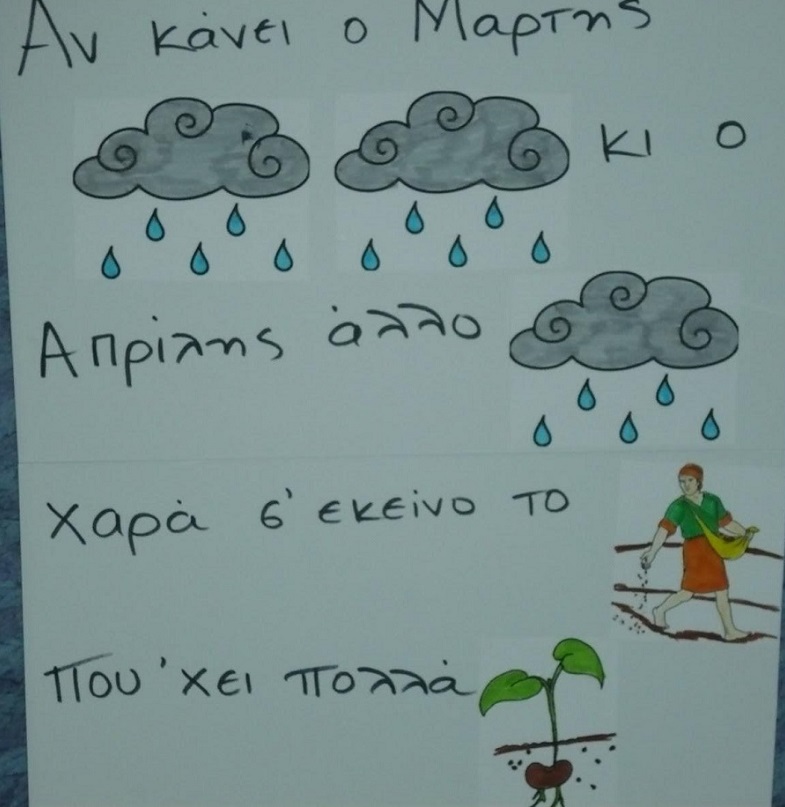 Αν κάνει ο Μαρτης
κι ο
Απρίλης άλλο
Χαρά σ' εκείνο το
Που 'χει πολλά